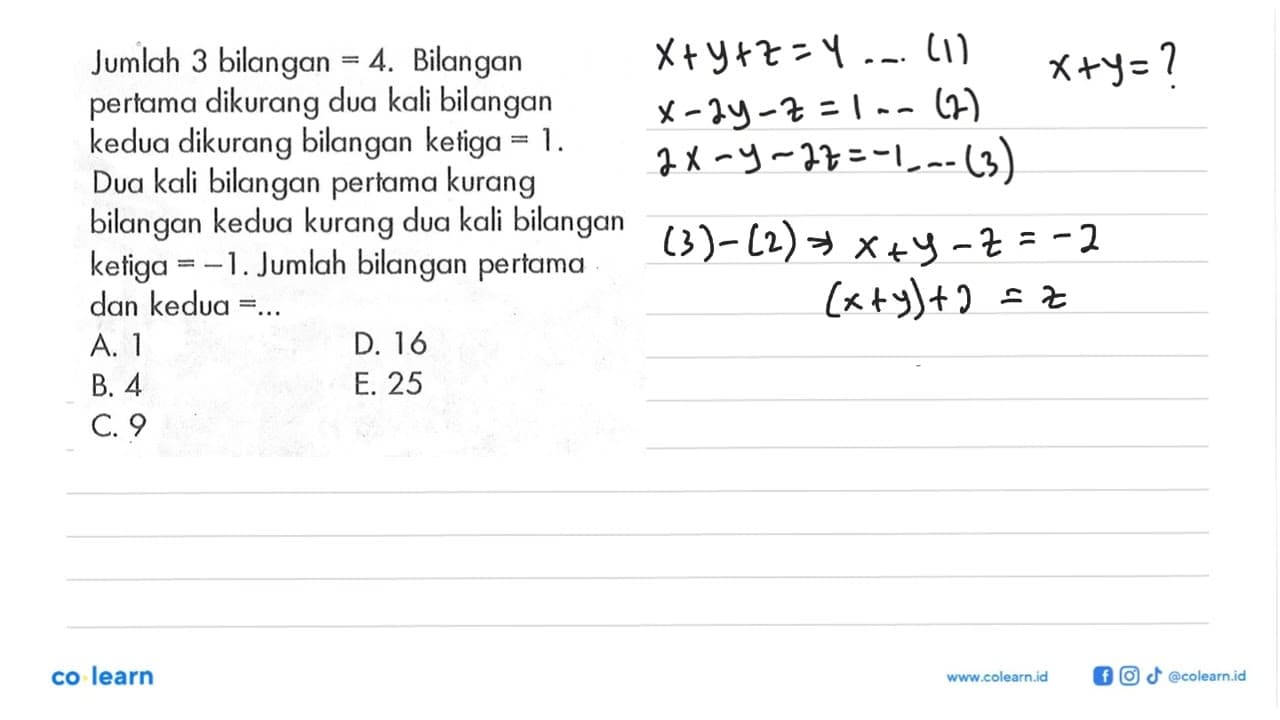 Jumlah 3 bilangan = 4. Bilangan
pertama dikurang dua kali bilangan
kedua dikurang bilangan ketiga = 1.
Dua kali bilangan pertama kurang
bilangan kedua kurang dua kali bilangan
ketiga = -1. Jumlah bilangan pertama
dan kedua =...
A. 1 D. 16
B. 4 E. 25
C. 9
x+y+z=4 ... (1) x+y=?
x-2y-z=1 -- (2)
2x-y-2z=-1 --- (3)
(3)-(2) → x+y-z=-2
(x+y)+2 = z
co learn
www.colearn.id
@colearn.id